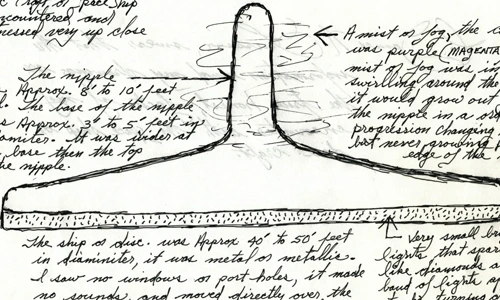 craft or space ship
encountered and
nessed very up close
The nipple
Approx. 8' to 10' feet
The base of the nipple
s Approx. 3' to 5' feet in
iamiter. It was wider at
base then the top
he nipple.
A mist or fog the c
was purple (MAGENTA
mist or fog was it
swirling around the
it would grow out
the nipple in a
progression Changing
but never growing
edge of the
The ship or disc. was Approx 40' to 50' feet
in diaminiter, it was metal or metallis.
I saw no windows or port holes, it made
no sounds, and moved directly over, the
Very small br
lights that spar
like diamonds
band of lights